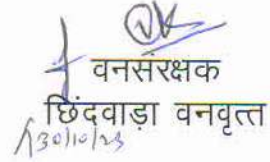 वनसंरक्षक
छिंदवाड़ा वनवृत्त
30/10/23